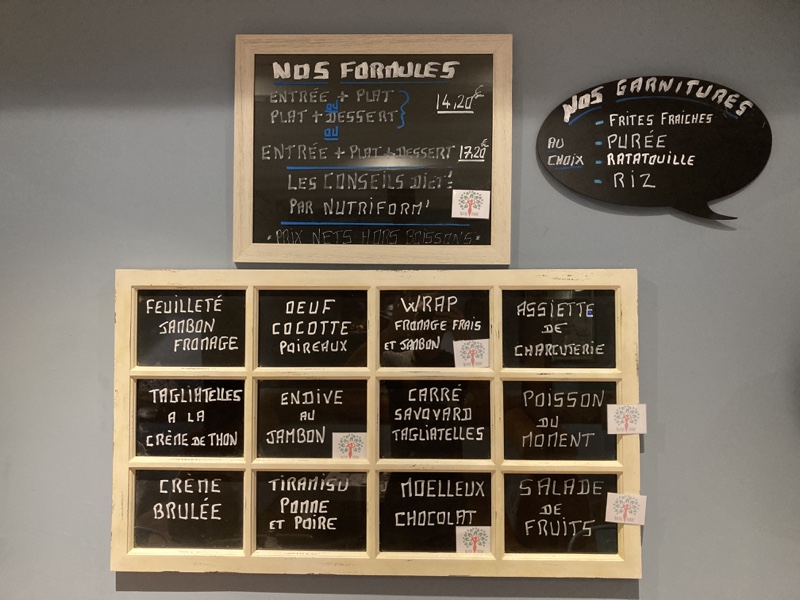 NOS FORMULES
ENTRÉE + PLAT
OU
PLAT + DESSERT
14,20€
OU
ENTRÉE + PLAT + DESSERT 17,20€
LES CONSEILS DIET'
PAR NUTRIFORM'
• PRIX NETS HORS BOISSONS •
NOS GARNITURES
AU CHOIX
- FRITES FRAICHES
- PURÉE
- RATATOUILLE
- RIZ
FEUILLETÉ
JAMBON
FROMAGE
OEUF
COCOTTE
POIREAUX
WRAP
FROMAGE FRAIS
ET JAMBON
ASSIETTE
DE
CHARCUTERIE
TAGLIATELLES
A LA
CRÈME DE THON
ENDIVE
AU
JAMBON
CARRÉ
SAVOYARD
TAGLIATELLES
POISSON
DU
MOMENT
CRÈME
BRULÉE
TIRAMISU
POMME
ET POIRE
MOELLEUX
CHOCOLAT
SALADE
DE
FRUITS